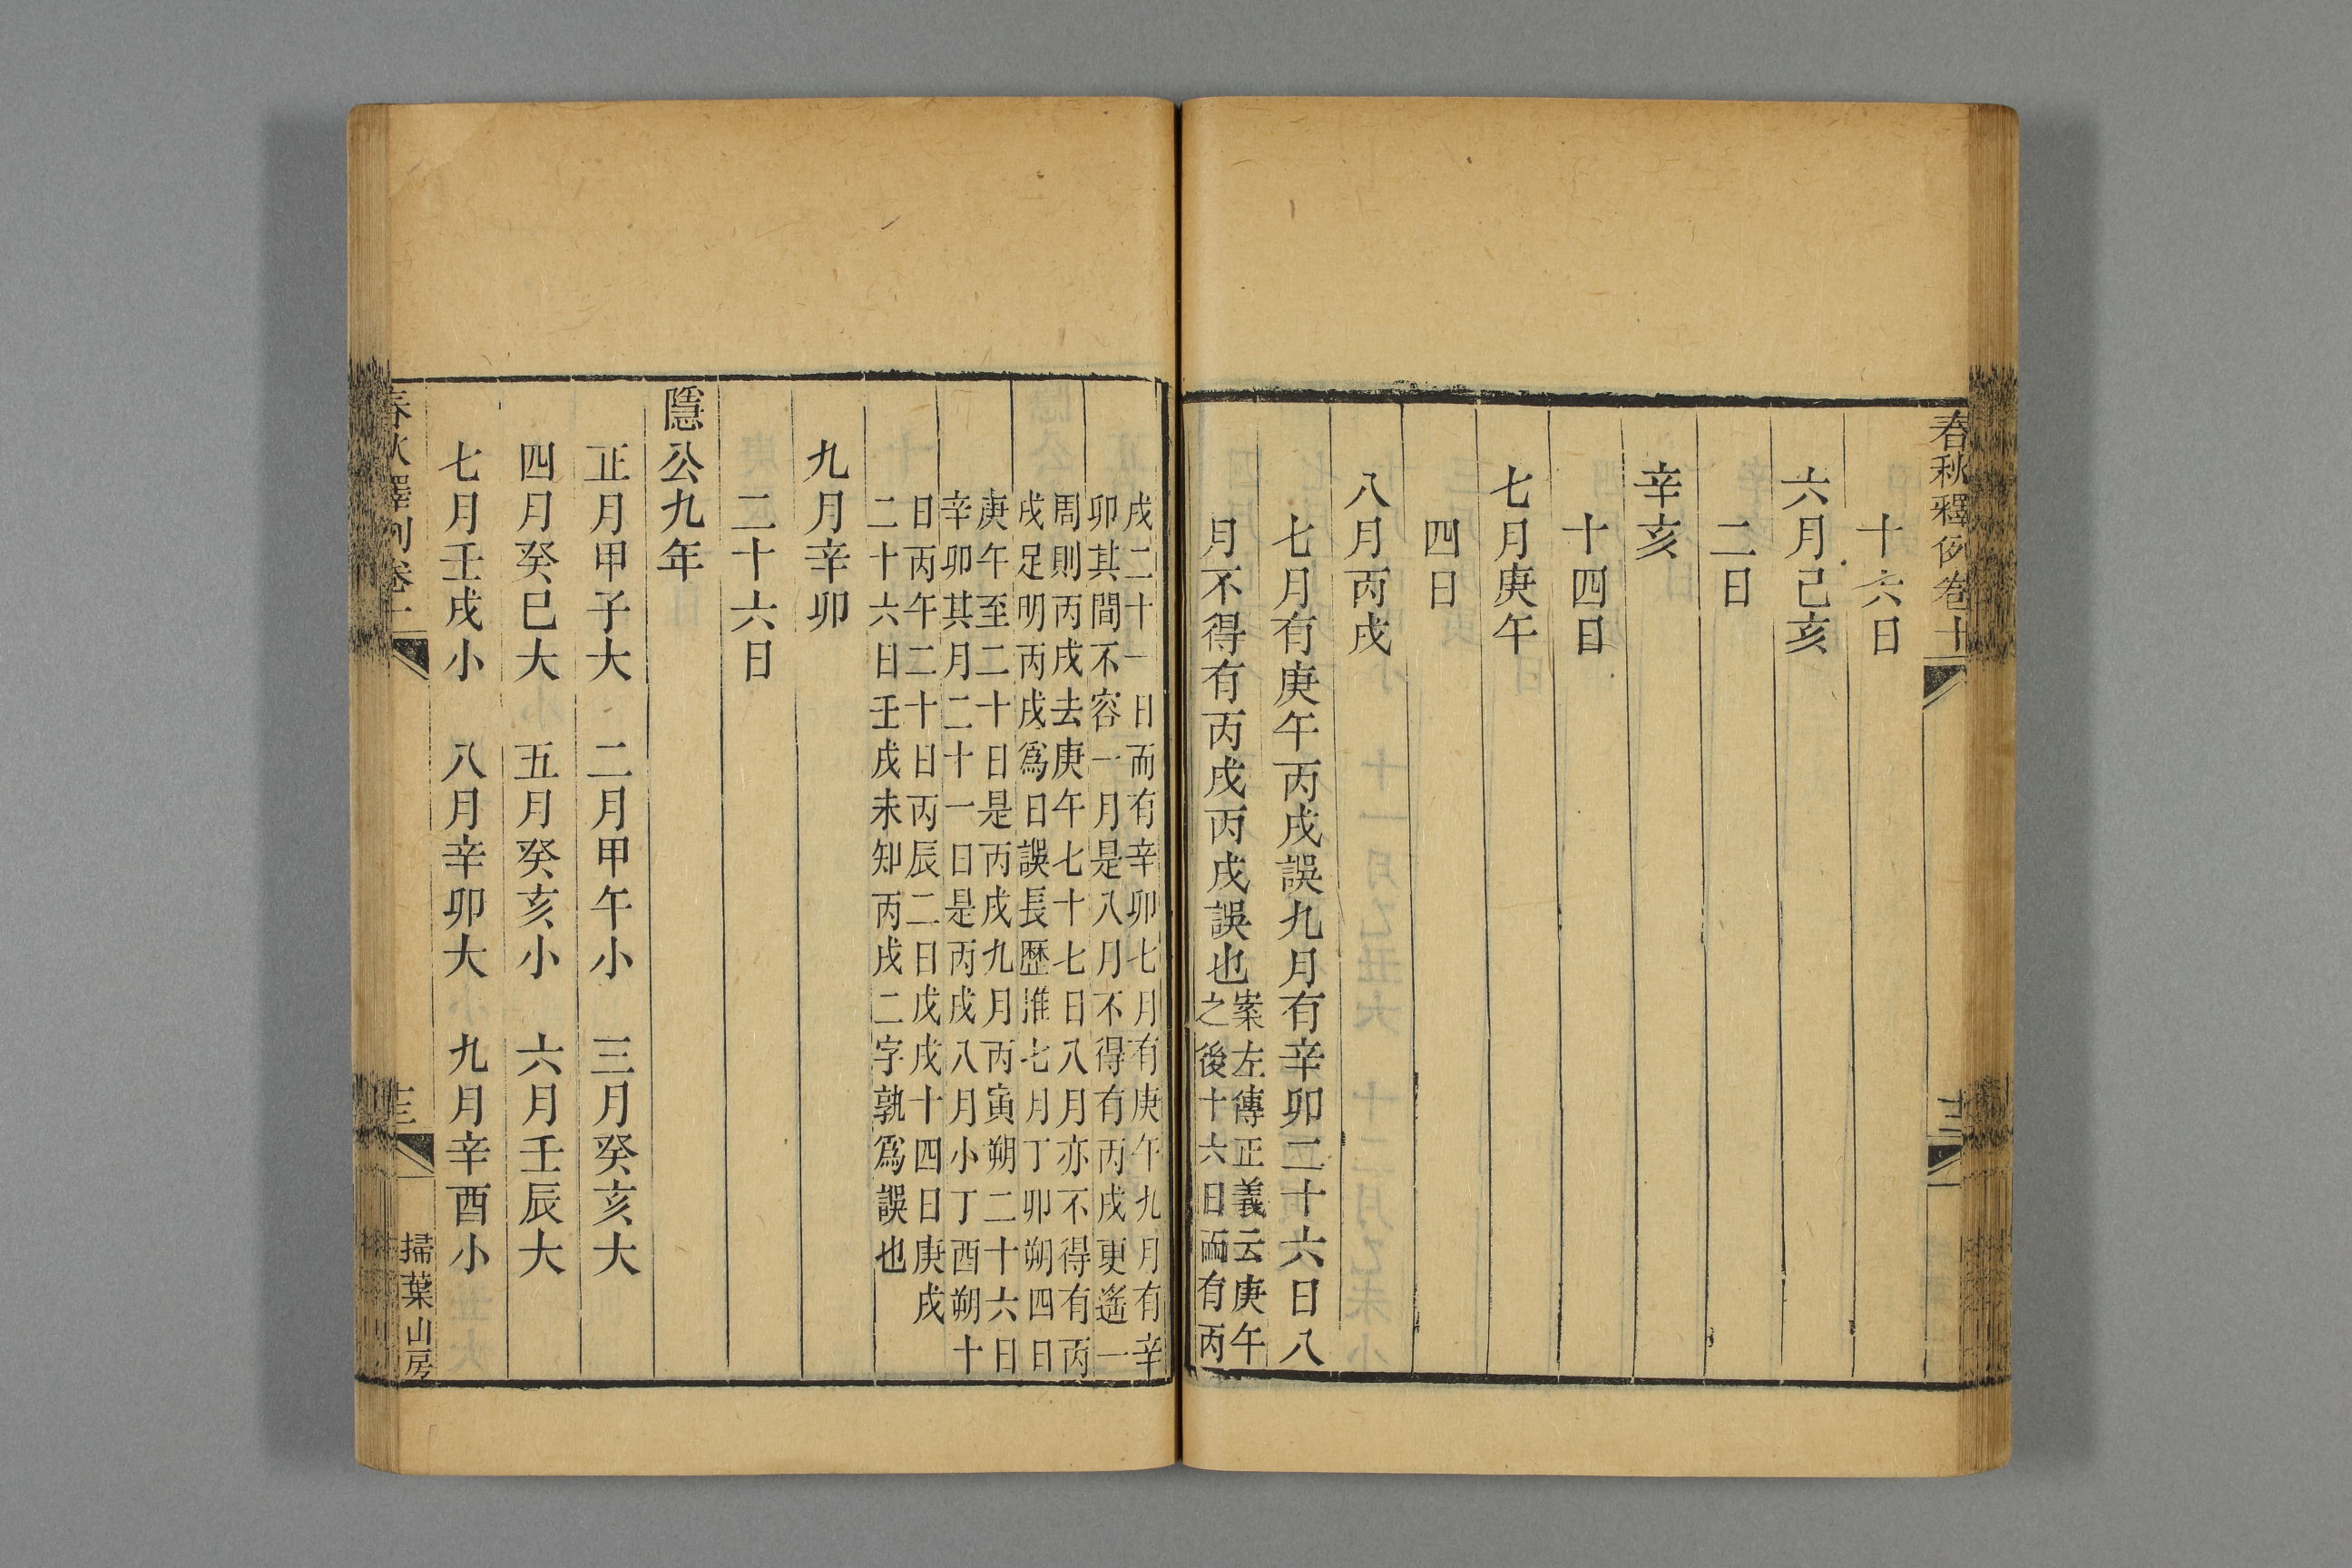 春秋釋例卷十
十二
十六日
六月己亥
二日
辛亥
十四日
七月庚午
四日
八月丙戌
七月有庚午丙戌誤九月有辛卯二十六日八
月不得有丙戌丙戌誤也
案左傳正義云庚午
之後十六日而有丙
戌二十一日而有辛卯七月有庚午九月有辛
卯其間不容一月是八月不得有丙戌更遙一
周則丙戌去庚午七十七日八月亦不得有丙
戌足明丙戌爲日誤長歷推七月丁卯朔四日
庚午至二十日是丙戌九月丙寅朔二十六日
辛卯其月二十一日是丙戌八月小丁酉朔十
日丙午二十日丙辰二日戊戌十四日庚戌
二十六日壬戌未知丙戌二字孰爲誤也
九月辛卯
二十六日
隱公九年
正月甲子大 二月甲午小 三月癸亥大
四月癸巳大 五月癸亥小 六月壬辰大
七月壬戌小 八月辛卯大 九月辛酉小
春秋釋例卷十
十三
掃葉山房